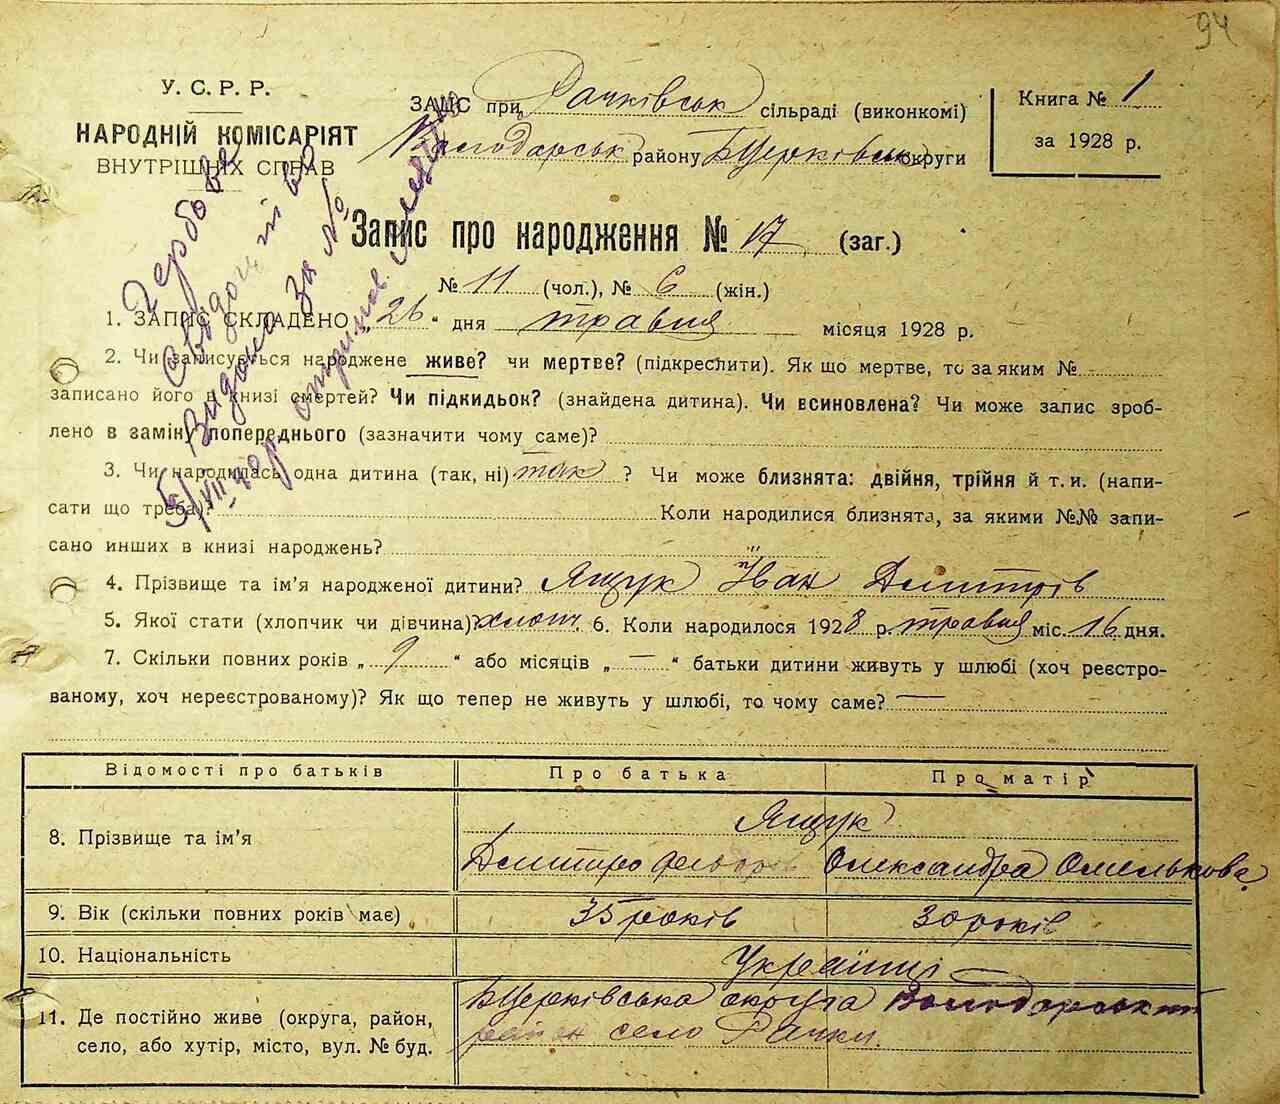 94
У. С. Р. Р.
НАРОДНІЙ КОМІСАРІЯТ
ВНУТРІШНІХ СПРАВ
ЗАПІС при Рачківськ сільраді (виконкомі)
Володарськ району БЦерківськ округи
Книга № 1
за 1928 р.
Гербове
свідоцтво
видано за №
отримав
5/VII
Запис про народження № 17 (заг.)
№ 11 (чол.), № 6 (жін.)
1. ЗАПИС СКЛАДЕНО „26“ дня травня місяця 1928 р.
2. Чи записується народжене живе? чи мертве? (підкреслити). Як що мертве, то за яким №
записано його в книзі смертей? Чи підкидьок? (знайдена дитина). Чи всиновлена? Чи може запис зроб-
лено в заміну попереднього (зазначити чому саме)?
3. Чи народилась одна дитина (так, ні) так ? Чи може близнята: двійня, трійня й т. и. (напи-
сати що треба)? Коли народилися близнята, за якими №№ запи-
сано инших в книзі народжень?
4. Прізвище та ім’я народженої дитини? Ящук Іван Дмитрів
5. Якої стати (хлопчик чи дівчина)? хлопч. 6. Коли народилося 1928 р. травня міс. 16 дня.
7. Скільки повних років „ 9 “ або місяців „ — “ батьки дитини живуть у шлюбі (хоч реєстро-
ваному, хоч нереєстрованому)? Як що тепер не живуть у шлюбі, то чому саме? —
Відомості про батьків Про батька Про матір
8. Прізвище та ім’я Ящук
Дмитро Федорів Олександра Омелькова
9. Вік (скільки повних років має) 35 років 30 років
10. Національність Українці
11. Де постійно живе (округа, район, БЦерківська округа Володарський
село, або хутір, місто, вул. № буд. район село Рачки.